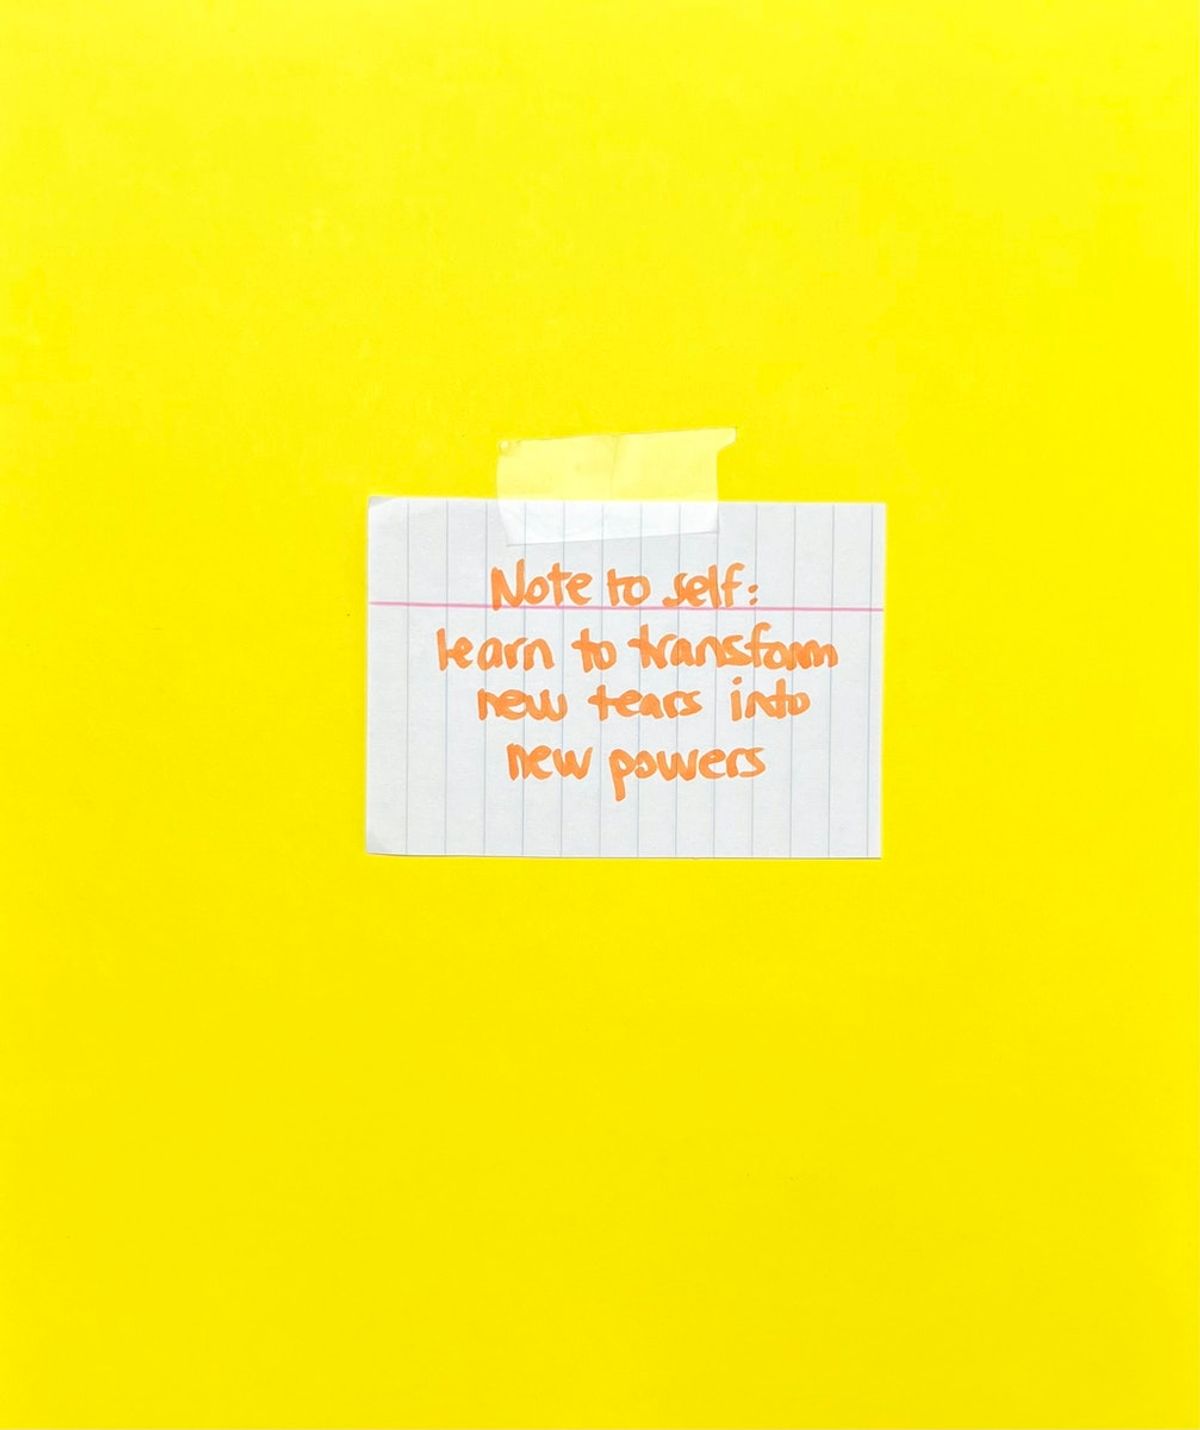 Note to self:
learn to transform
new tears into
new powers